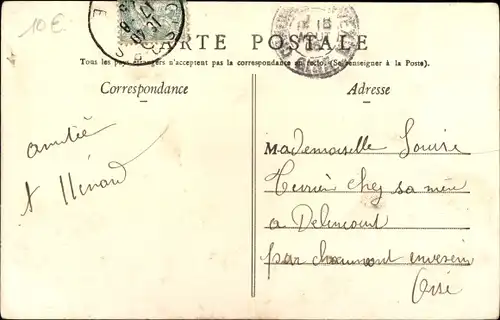 10€
CARTE POSTALE
Tous les pays étrangers n'acceptent pas la correspondance au recto. (Se renseigner à la Poste).
Correspondance
Adresse
amitié
Ménard
Mademoiselle Louise
chez sa mère
a Delincourt
par chaumont en vexin
Oise